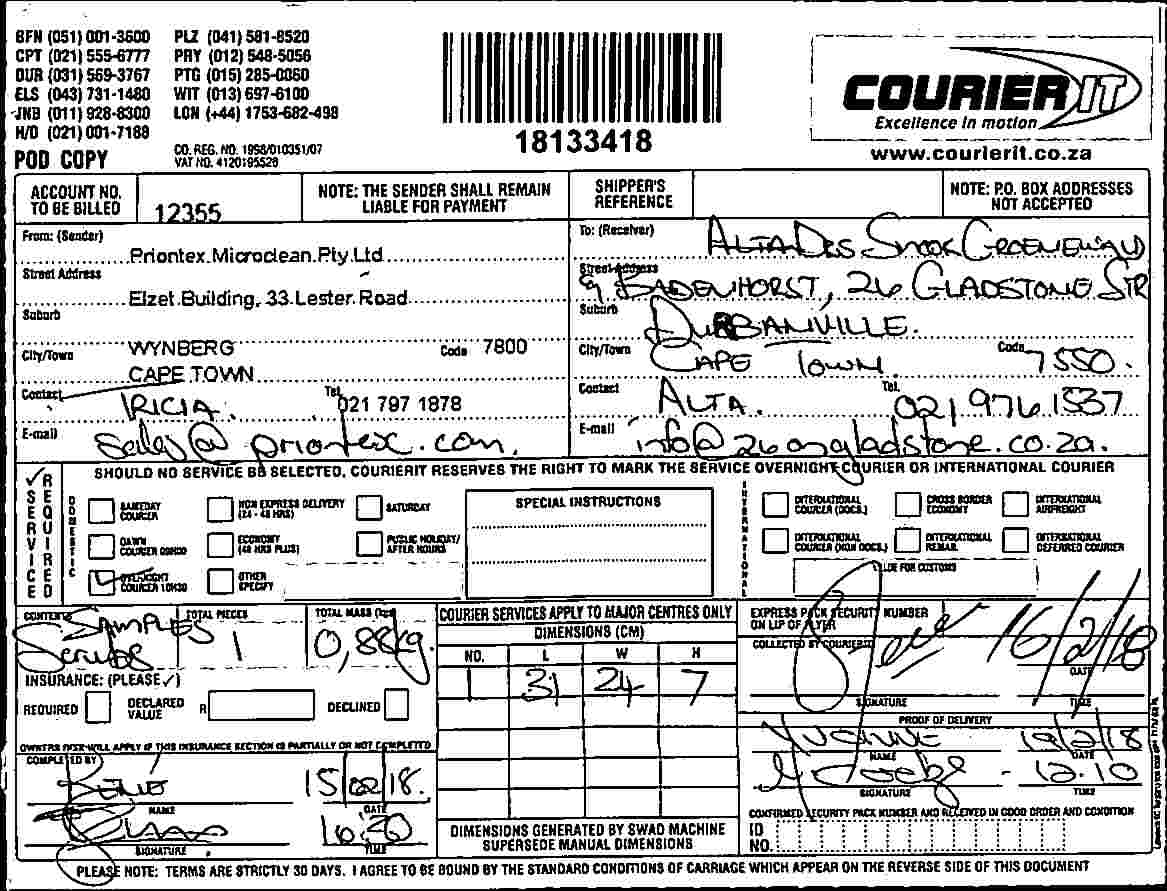 BFN (051) 001-3600 PLZ (041) 581-8520
CPT (021) 555-6777 PRY (012) 548-5056
DUR (031) 569-3767 PTG (015) 285-0060
ELS (043) 731-1480 WIT (013) 697-6100
JNB (011) 928-8300 LON (+44) 1753-682-498
H/O (021) 001-7188
POD COPY
CO. REG. NO. 1958/010351/07
VAT NO. 4120195528
18133418
COURIER IT
Excellence in motion
www.courierit.co.za
ACCOUNT NO. TO BE BILLED
12355
NOTE: THE SENDER SHALL REMAIN LIABLE FOR PAYMENT
SHIPPER'S REFERENCE
NOTE: P.O. BOX ADDRESSES NOT ACCEPTED
From: (Sender)
Priontex Microclean Pty Ltd
Street Address
Elzet Building, 33 Lester Road
Suburb
City/Town WYNBERG Code 7800
CAPE TOWN
Contact TRICIA Tel. 021 797 1878
E-mail sales@priontex.com
To: (Receiver) ALTA Snook GROENEWALD
Street Address
BADENHORST, 26 GLADSTONE STR
Suburb DURBANVILLE.
City/Town CAPE TOWN Code 7550.
Contact ALTA. Tel. 021 976 1537
E-mail info@26ongladstone.co.za.
SHOULD NO SERVICE BE SELECTED, COURIERIT RESERVES THE RIGHT TO MARK THE SERVICE OVERNIGHT COURIER OR INTERNATIONAL COURIER
✓ SERVICE REQUIRED
DOMESTIC
SAMEDAY COURIER
NON EXPRESS DELIVERY (24 - 48 HRS)
SATURDAY
DAWN COURIER 09H00
ECONOMY (48 HRS PLUS)
PUBLIC HOLIDAY/ AFTER HOURS
OVERNIGHT COURIER 10H30
OTHER SPECIFY
SPECIAL INSTRUCTIONS
INTERNATIONAL
INTERNATIONAL COURIER (DOCS.)
CROSS BORDER ECONOMY
INTERNATIONAL AIRFREIGHT
INTERNATIONAL COURIER (NON DOCS.)
INTERNATIONAL REMAIL
INTERNATIONAL DEFERRED COURIER
VALUE FOR CUSTOMS
CONTENTS SAMPLES
Scrubs
TOTAL PIECES 1
TOTAL MASS (kg) 0,88kg.
INSURANCE: (PLEASE ✓)
REQUIRED DECLARED VALUE R DECLINED
OWNERS RISK WILL APPLY IF THIS INSURANCE SECTION IS PARTIALLY OR NOT COMPLETED
COMPLETED BY
15/02/18.
NAME DATE
16:20
SIGNATURE TIME
COURIER SERVICES APPLY TO MAJOR CENTRES ONLY
DIMENSIONS (CM)
NO. L W H
1 31 24 7
DIMENSIONS GENERATED BY SWAD MACHINE SUPERSEDE MANUAL DIMENSIONS
EXPRESS PACK SECURITY NUMBER ON LIP OF FLYER
COLLECTED BY COURIERIT
16/2/18
DATE
SIGNATURE TIME
PROOF OF DELIVERY
YVONNE
NAME DATE
12.10
SIGNATURE TIME
CONFIRMED SECURITY PACK NUMBER AND RECEIVED IN GOOD ORDER AND CONDITION
ID NO.
PLEASE NOTE: TERMS ARE STRICTLY 30 DAYS. I AGREE TO BE BOUND BY THE STANDARD CONDITIONS OF CARRIAGE WHICH APPEAR ON THE REVERSE SIDE OF THIS DOCUMENT